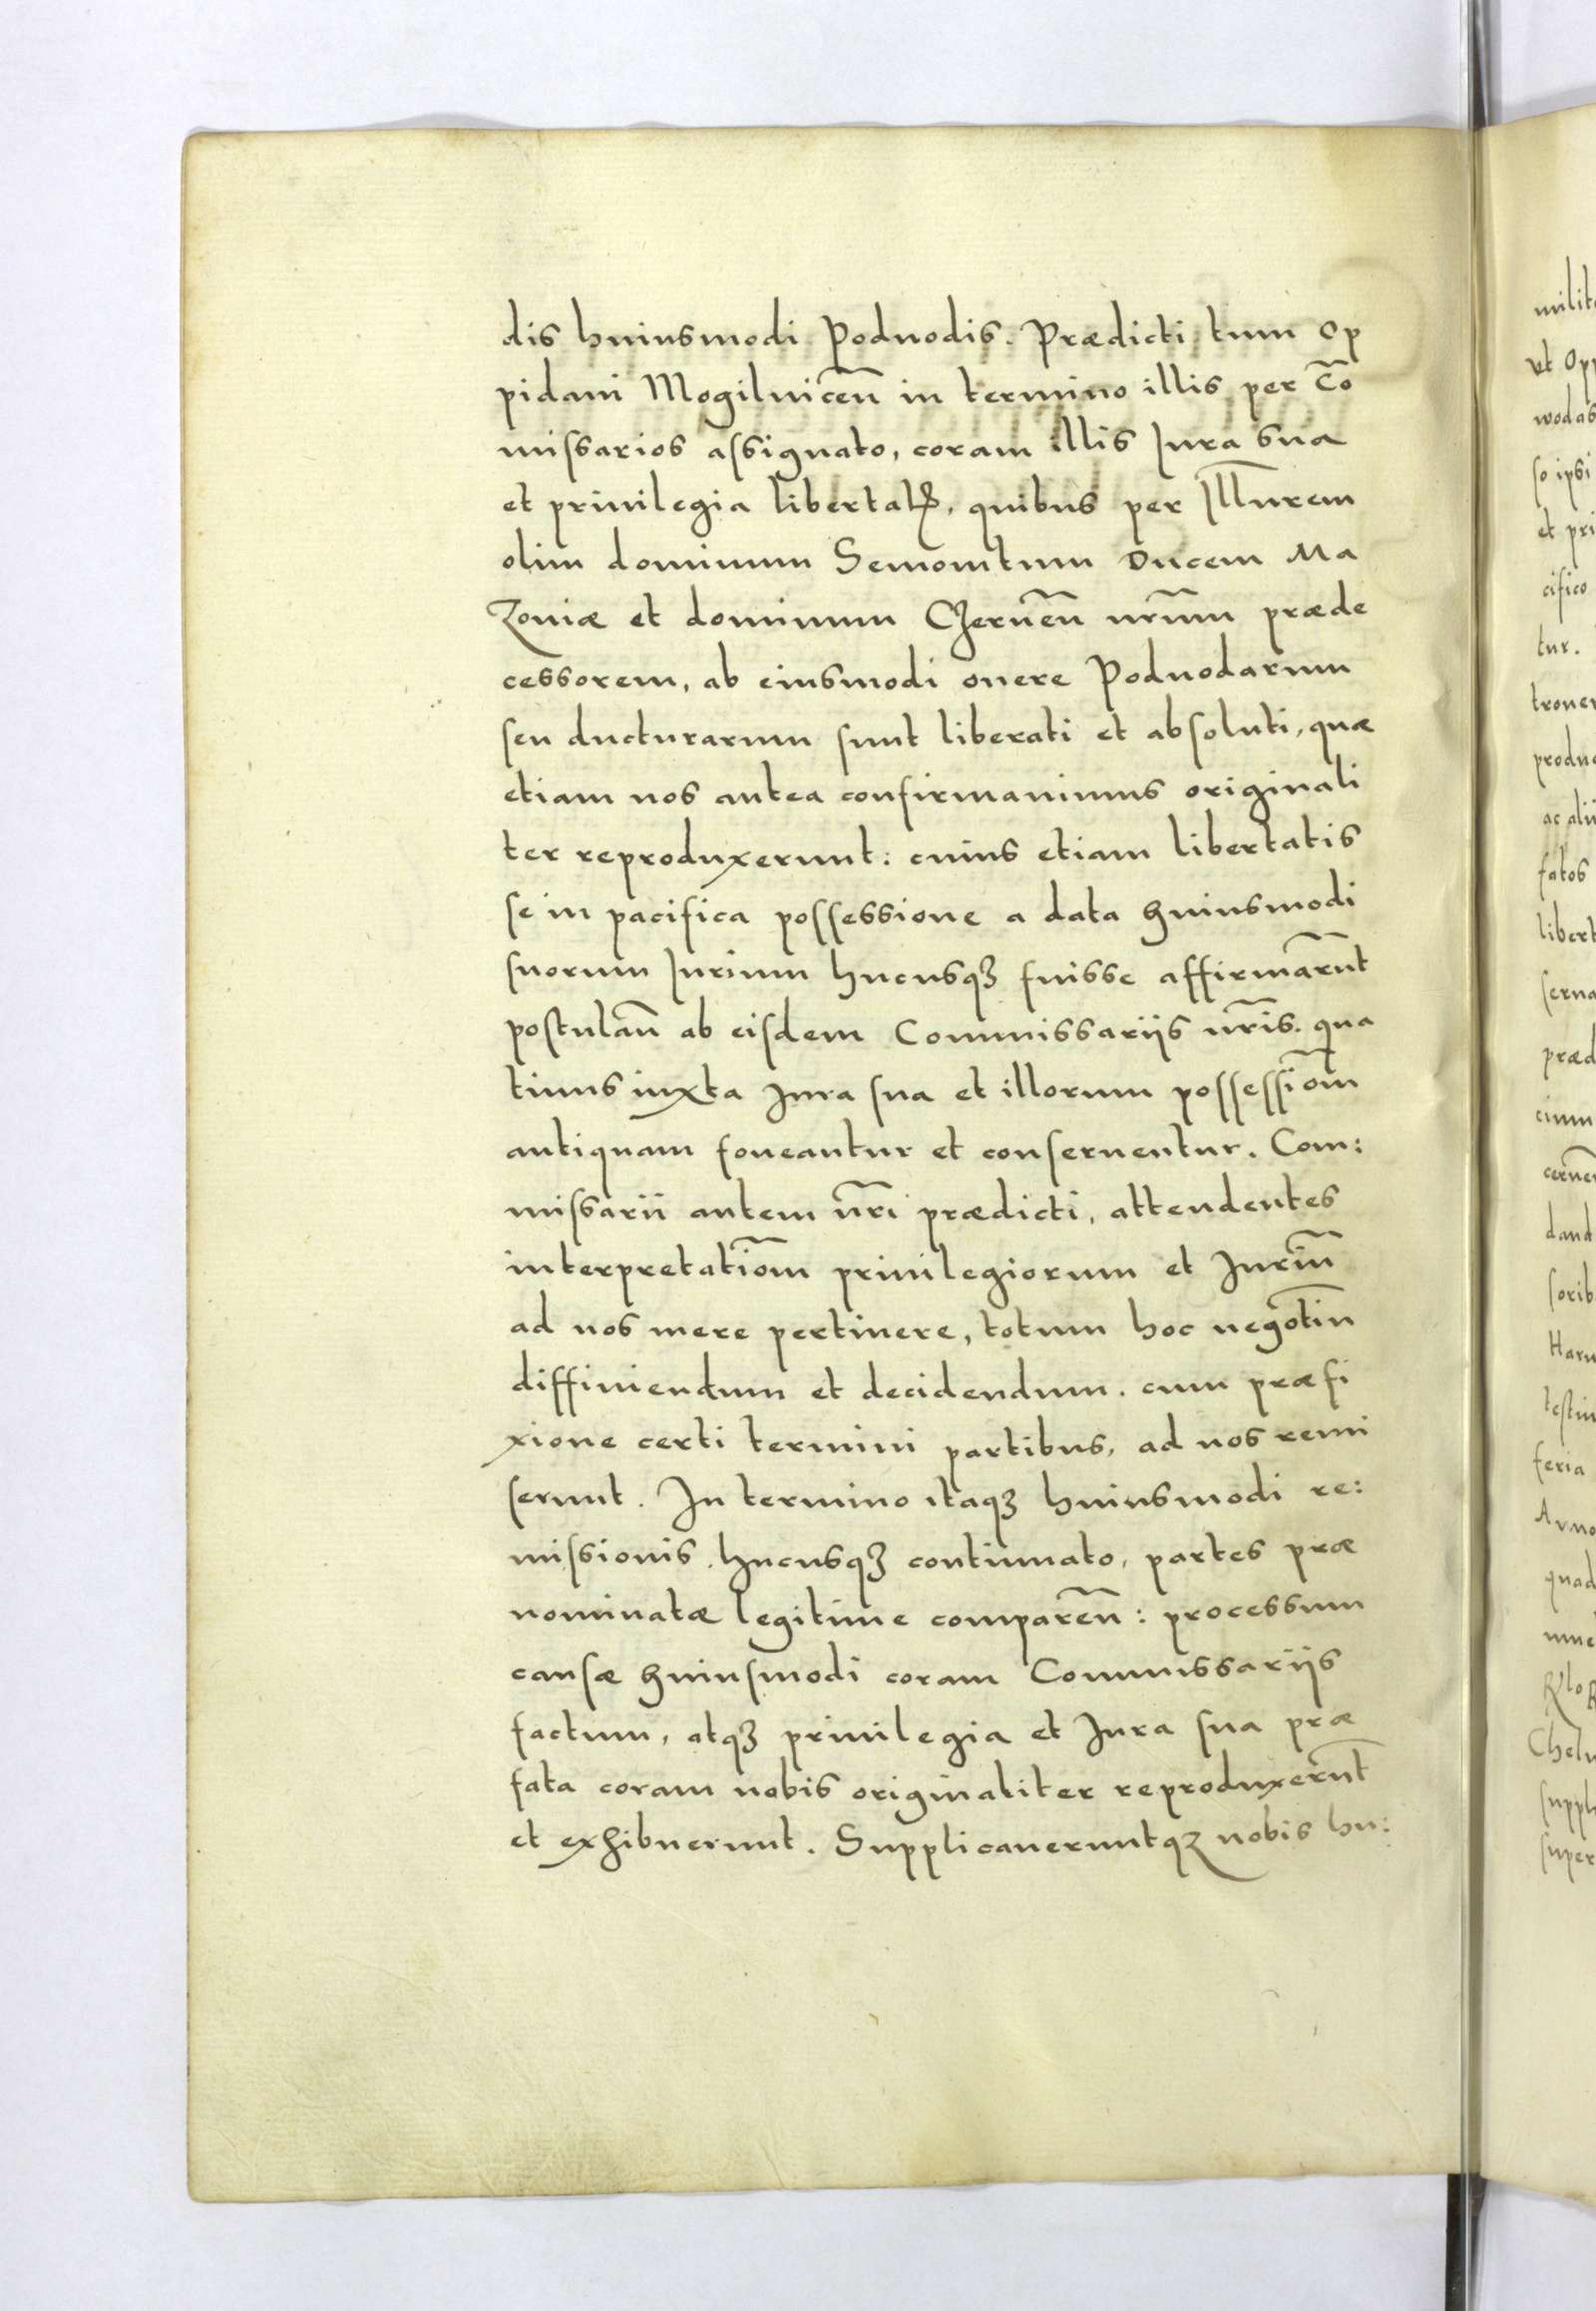 dis huiusmodi Poduodis. Prædicti tum Op
pidani Mogilnicen̄ in termino illis per Cō
miſsarios aſsignato, coram illis Iura sua
et priuilegia libertatꝭ, quibus per Illurem̄
olim dominum Semouitum Ducem Ma
Zouiæ et dominum Czernen̄ nrūm præde
cessorem, ab eiusmodi onere Poduodarum
ſeu ducturarum ſunt liberati et abſoluti, quæ
etiam nos antea confirmauimus originali
ter reproduxerunt: cuius etiam libertatis
ſe in pacifica poſſessione a data huiusmodi
ſuorum Iurium hucusqꝫ fuisse affirmarūt
poſtulan̄ ab eiſdem Commissariis nrīs. qua
tinus iuxta Iura ſua et illorum poſſeſſiom̄
antiquam foueantur et conſeruentur. Com:
miſsarii autem nr̄i prædicti, attendentes
interpretatiom̄ priuilegiorum et Iuriū
ad nos mere pertinere, totum hoc negotiū
diffiniendum et decidendum. cum præfi
xione certi termini partibus, ad nos remi
ſerunt. In termino itaqꝫ huiusmodi re:
miſsionis. hucusqꝫ continuato, partes præ
nominatæ legitime comparen̄: processum
cauſæ huiuſmodi coram Commissariis
factum, atqꝫ priuilegia et Iura ſua præ
fata coram nobis originaliter reproduxerūt
et exhibuerunt. Supplicaueruntqꝫ nobis hu:
milit
ut Opp
wodas
ſo ipsi
et pri
cifico
tur.
troner
produ
ac alii
fatos
libert
ſerua
præd
cium
cernen
dand
ſorib
Haru
teſtim
feria
Arno
quad
Chelm
ſuppl
ſuper